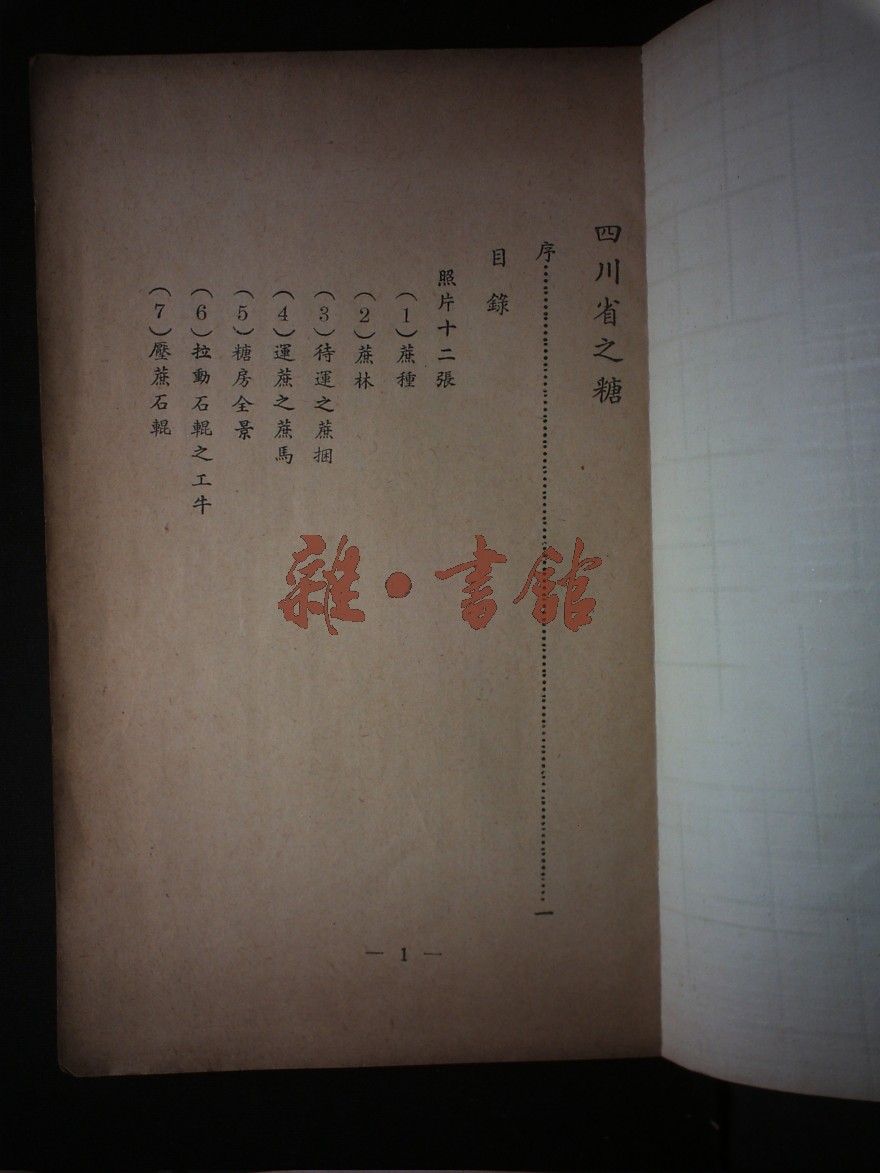 四川省之糖
序……………………………………一
目錄
照片十二張
(1)蔗種
(2)蔗林
(3)待運之蔗捆
(4)運蔗之蔗馬
(5)糖房全景
(6)拉動石輥之工牛
(7)壓蔗石輥
— 1 —
雜·書館